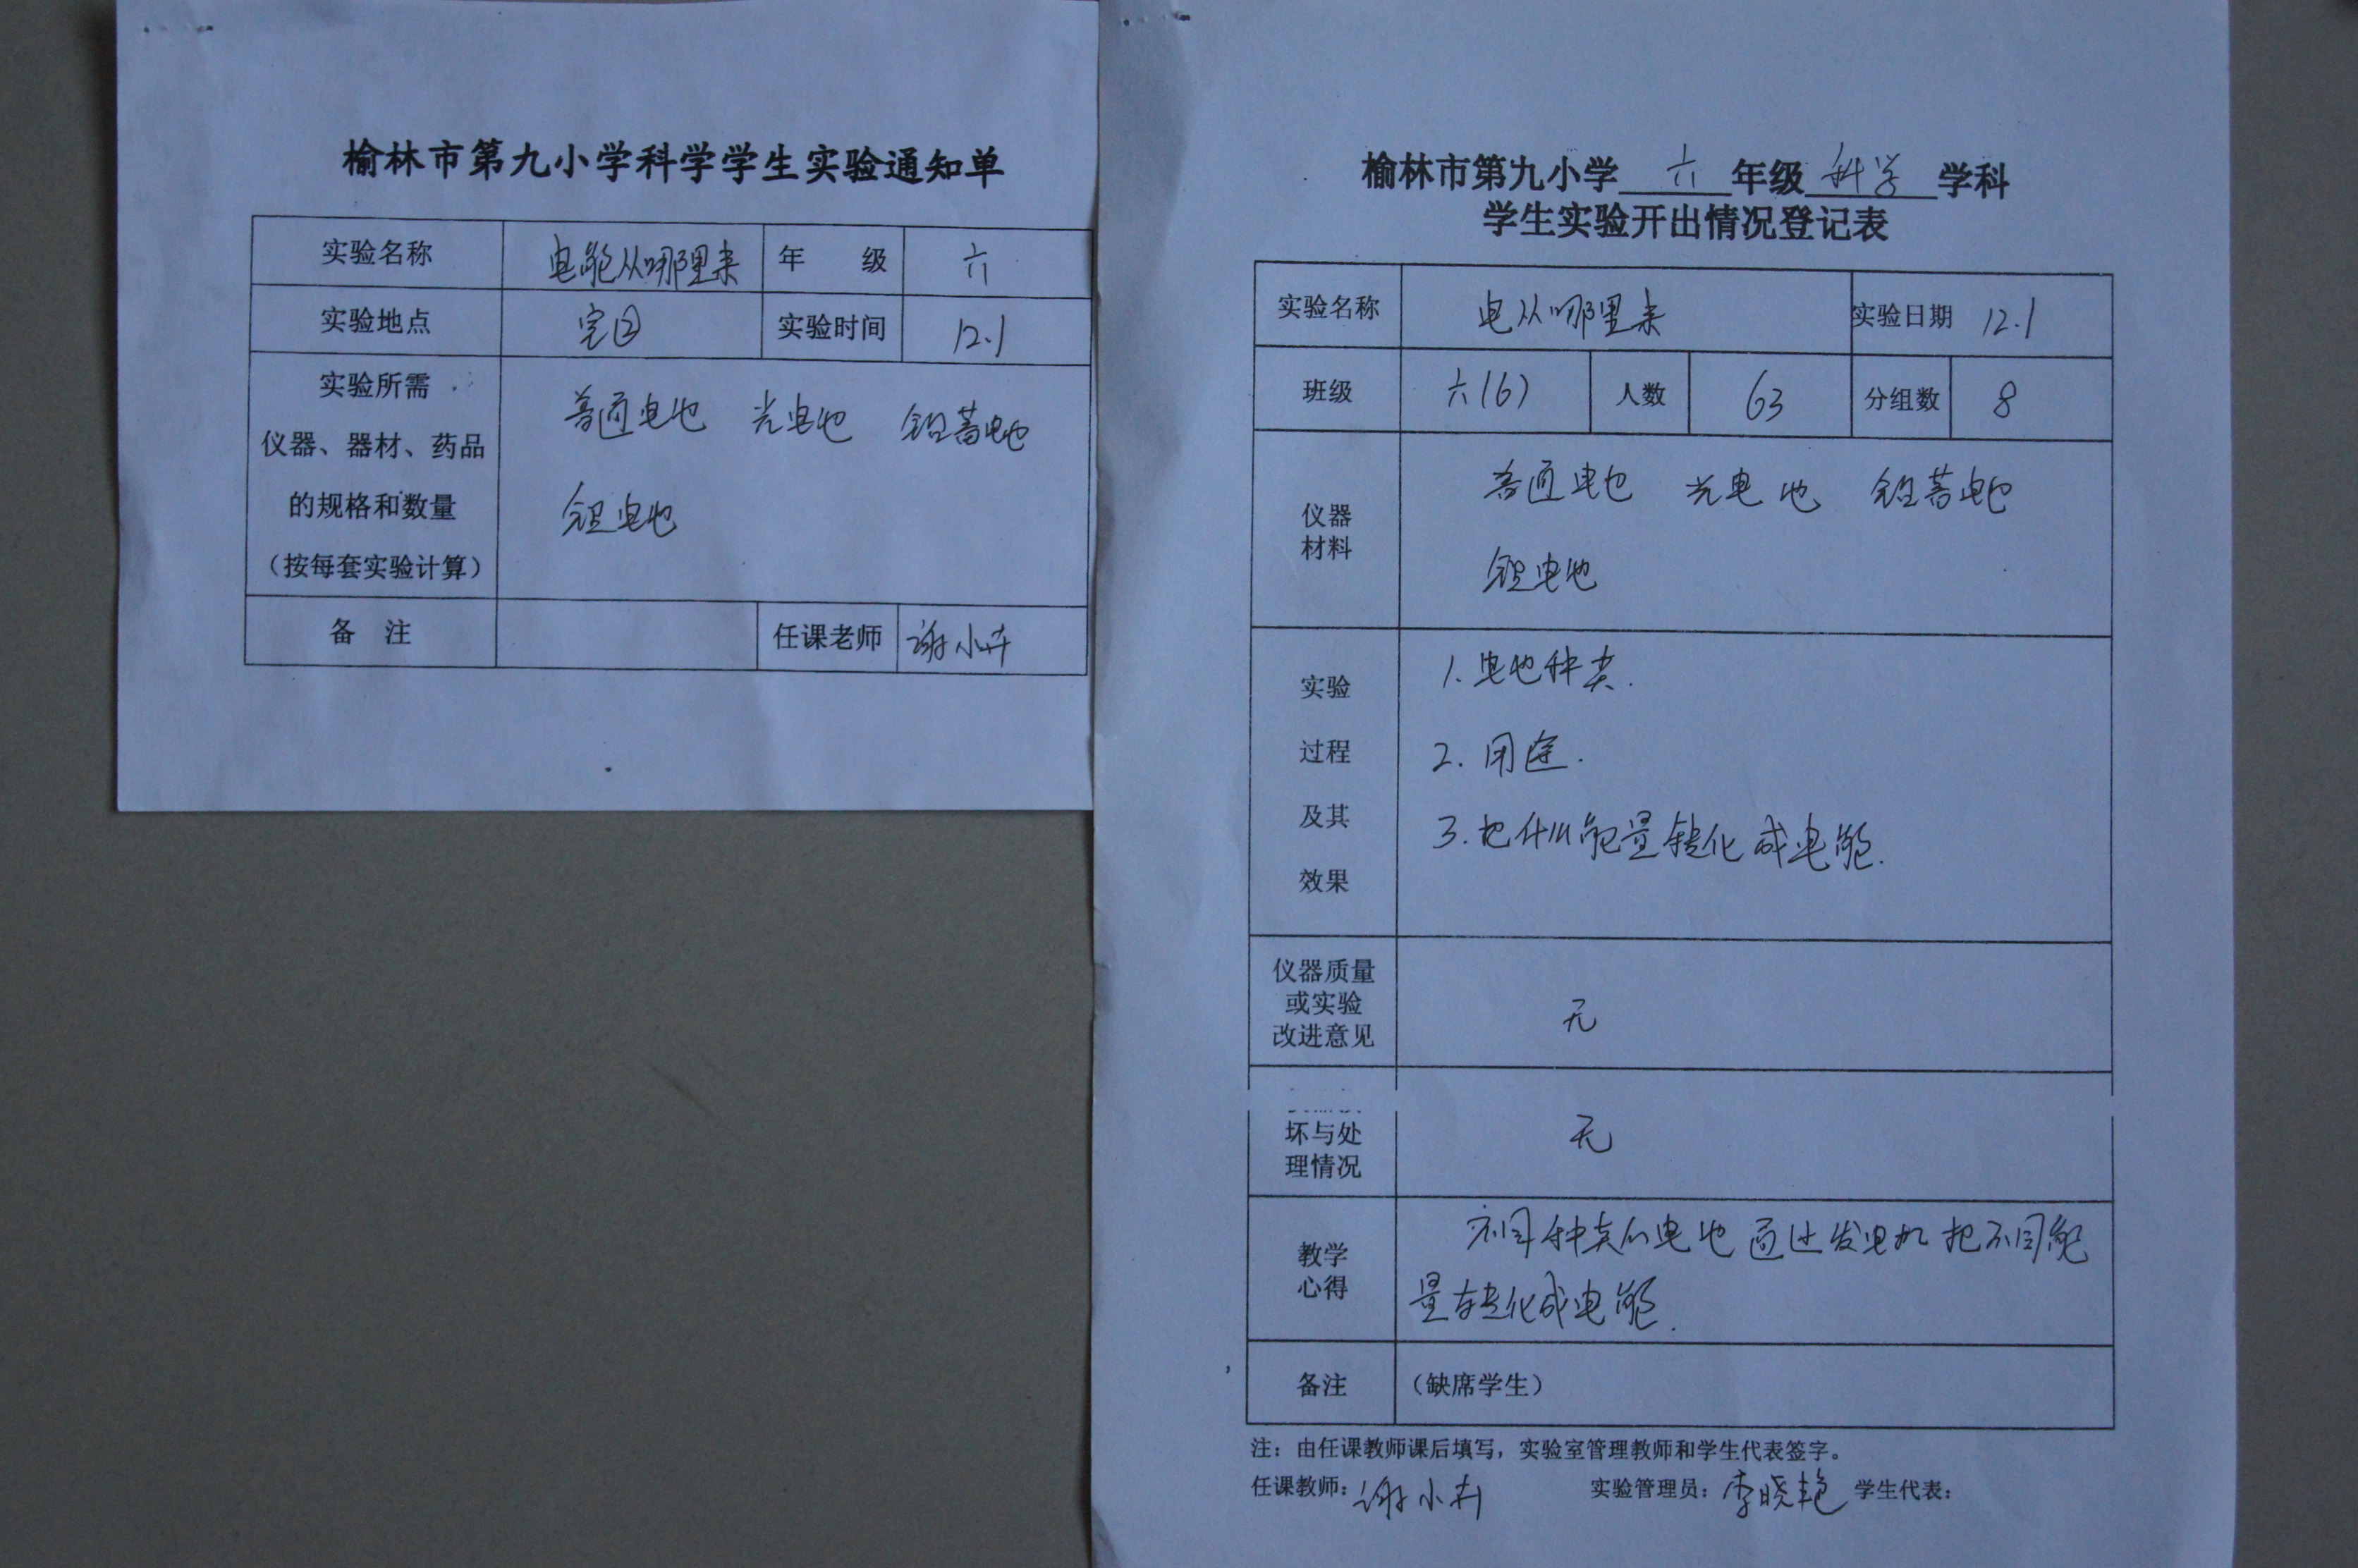 榆林市第九小学科学学生实验通知单
实验名称 电能从哪里来 年 级 六
实验地点 实(2) 实验时间 12.1
实验所需
仪器、器材、药品
的规格和数量
（按每套实验计算）
普通电池 光电池 铅蓄电池
锂电池
备 注 任课老师 谢小卉
榆林市第九小学 六 年级 科学 学科
学生实验开出情况登记表
实验名称 电从哪里来 实验日期 12.1
班级 六(6) 人数 63 分组数 8
仪器
材料
普通电池 光电池 铅蓄电池
锂电池
实验
过程
及其
效果
1. 电池种类.
2. 用途.
3. 把什么能量转化成电能.
仪器质量
或实验
改进意见
无
坏与处
理情况
无
教学
心得
不同种类的电池通过发电机把不同能
量转化成电能.
备注 （缺席学生）
注：由任课教师课后填写，实验室管理教师和学生代表签字。
任课教师：谢小卉 实验管理员：李晓艳 学生代表：